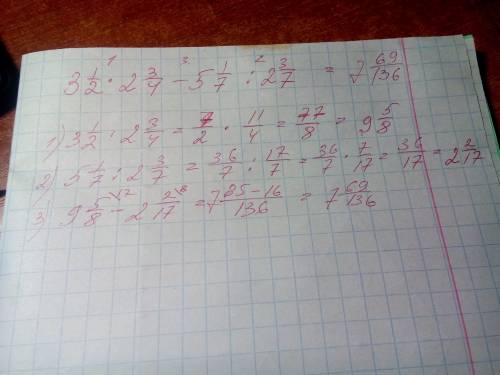 1 3 2
3 1/2 · 2 3/4 - 5 1/7 : 2 3/7 = 7 69/136
1) 3 1/2 · 2 3/4 = 7/2 · 11/4 = 77/8 = 9 5/8
2) 5 1/7 : 2 3/7 = 36/7 : 17/7 = 36/7 · 7/17 = 36/17 = 2 2/17
3) 9 5/8 \17 - 2 2/17 \8 = 7 85-16/136 = 7 69/136